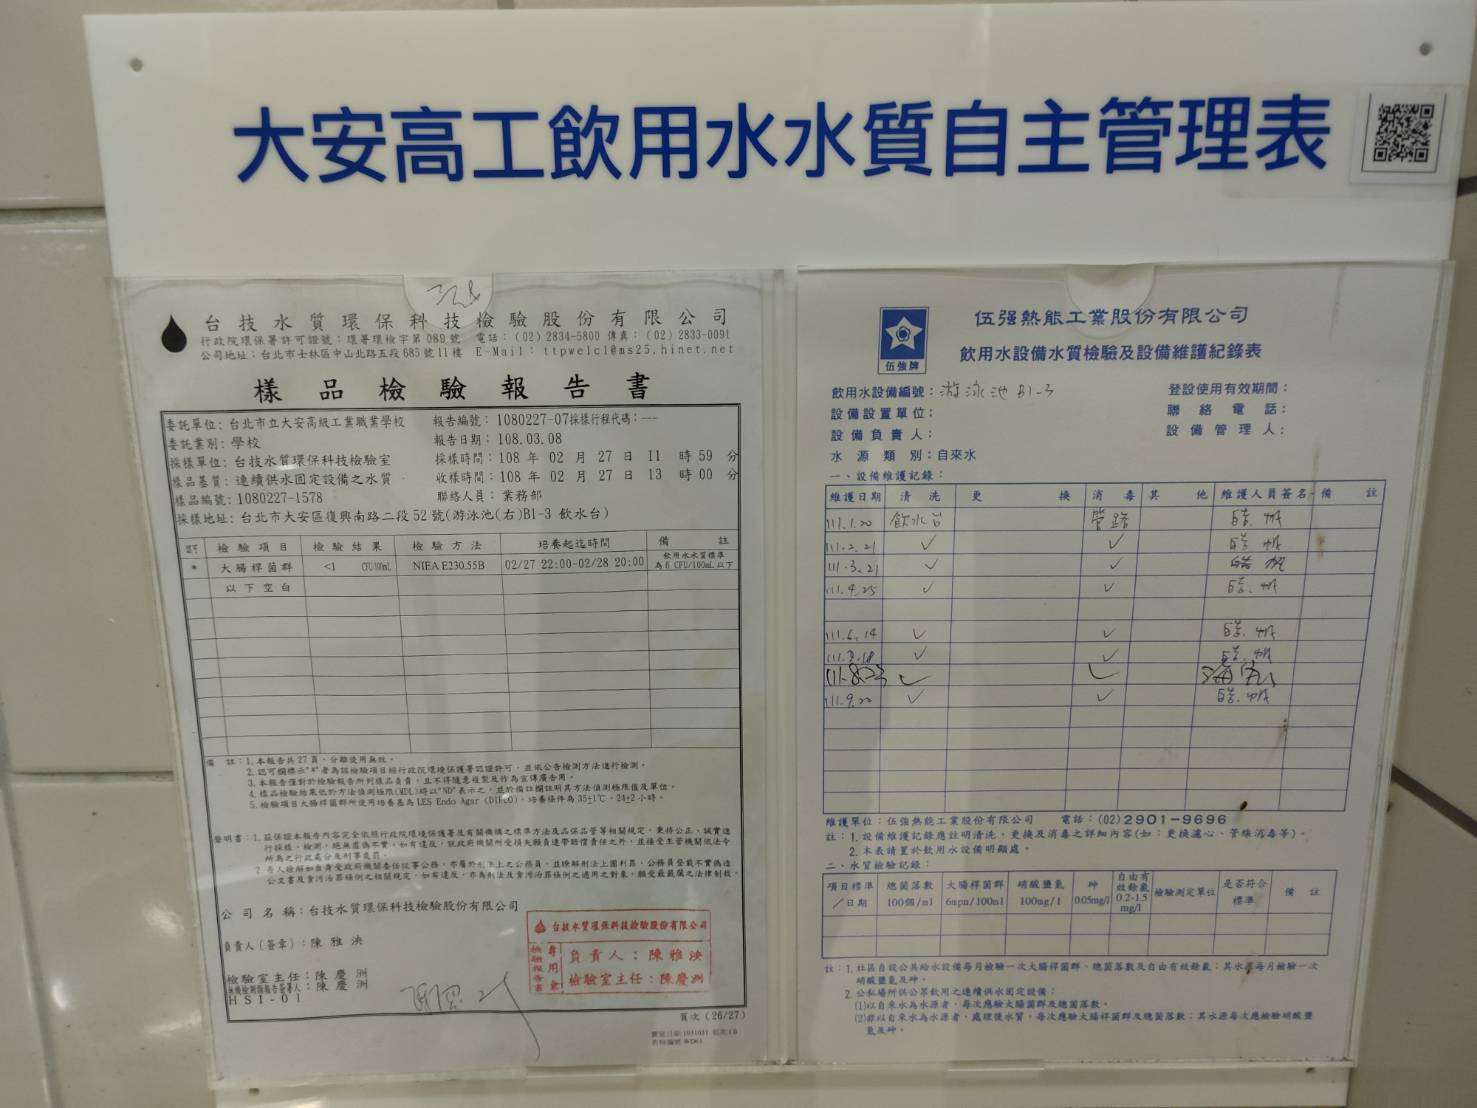 大安高工飲用水水質自主管理表
台技水質環保科技檢驗股份有限公司
行政院環保署許可證號：環署環檢字第080號 電話：(02)2834-5800 傳真：(02)2833-0091
公司地址：台北市士林區中山北路五段685號11樓 E-Mail：ttpwelcl@ms25.hinet.net
樣品檢驗報告書
委託單位：台北市立大安高級工業職業學校 報告編號：1080227-07採樣行程代碼：---
委託業別：學校 報告日期：108.03.08
採樣單位：台技水質環保科技檢驗室 採樣時間：108 年 02 月 27 日 11 時 59 分
樣品基質：連續供水固定設備之水質 收樣時間：108 年 02 月 27 日 13 時 00 分
樣品編號：1080227-1578 聯絡人員：業務部
採樣地址：台北市大安區復興南路二段52號(游泳池(右)B1-3 飲水台)
檢驗項目 檢驗結果 檢驗方法 培養起迄時間 備註
* 大腸桿菌群 <1 CFU/100mL NIEA E230.55B 02/27 22:00-02/28 20:00 飲用水水質標準
為6 CFU/100mL 以下
以下空白
備註：1.本報告共27頁，分離使用無效。
2.認可欄標示"*"者為該檢驗項目經行政院環境保護署認證許可，並依公告檢測方法進行檢測。
3.本報告僅對於檢驗報告所列樣品負責，且不得隨意複製及作為宣傳廣告用。
4.樣品檢驗結果低於方法偵測極限(MDL)時以"ND"表示之，並於備註欄註明其方法偵測極限值及單位。
5.檢驗項目大腸桿菌群所使用培養基為LES Endo Agar (DIFCO)，培養條件為35±1℃，24±2小時。
聲明書：1.茲保證本報告內容完全依照行政院環境保護署及有關機構之標準方法及品保品管等相關規定，秉持公正、誠實進
行採樣、檢測，絕無虛偽不實，如有違反，就政府機關所受損失願負連帶賠償責任之外，並接受主管機關依法令
所為之行政處分及刑事處罰。
2.吾人瞭解如自身受政府機關委任從事公務，亦屬於刑法上之公務員，並瞭解刑法上圖利罪、公務員登載不實偽造
公文書及貪污治罪條例之相關規定，如有違反，亦為刑法及貪污治罪條例之適用之對象，願受最嚴厲之法律制裁。
公司名稱：台技水質環保科技檢驗股份有限公司
負責人(簽章)：陳雅泱
檢驗室主任：陳慶洲
無機檢測類報告簽署人：陳慶洲
HSI-01
台技水質環保科技檢驗股份有限公司
檢驗報告書專用章
負責人：陳雅泱
檢驗室主任：陳慶洲
頁次(26/27)
伍強牌
伍强熱能工業股份有限公司
飲用水設備水質檢驗及設備維護紀錄表
飲用水設備編號：游泳池 B1-3 登設使用有效期間：
設備設置單位： 聯絡電話：
設備負責人： 設備管理人：
水源類別：自來水
一、設備維護記錄：
維護日期 清洗 更換 消毒 其他 維護人員簽名 備註
111.1.20 飲水台 管路
111.2.21 ✓ ✓
111.3.21 ✓
111.4.25 ✓ ✓
111.6.14 ✓ ✓
✓ ✓
✓ ✓
111.9.20 ✓ ✓
維護單位：伍強熱能工業股份有限公司 電話：(02)2901-9696
註：1.設備維護記錄應註明清洗、更換及消毒之詳細內容(如：更換濾心、管維消毒等)。
2.本表請置於飲用水設備明顯處。
二、水質檢驗記錄：
項目標準／日期 總菌落數 100個/ml 大腸桿菌群 6mpn/100ml 硝酸鹽氮 100mg/l 砷 0.05mg/l 自由有效餘氯 0.2-1.5 mg/l 檢驗測定單位 是否符合標準 備註
註：1.社區自設公共給水設備每月檢驗一次大腸桿菌群、總菌落數及自由有效餘氯；其水源每月檢驗一次
硝酸鹽氮及砷。
2.公私場所供公眾飲用之連續供水固定設備：
(1)以自來水為水源者，每次應驗大腸桿菌群及總菌落數。
(2)非以自來水為水源者，處理後水質，每次應驗大腸桿菌群及總菌落數；其水源每次應檢驗硝酸鹽
氮及砷。